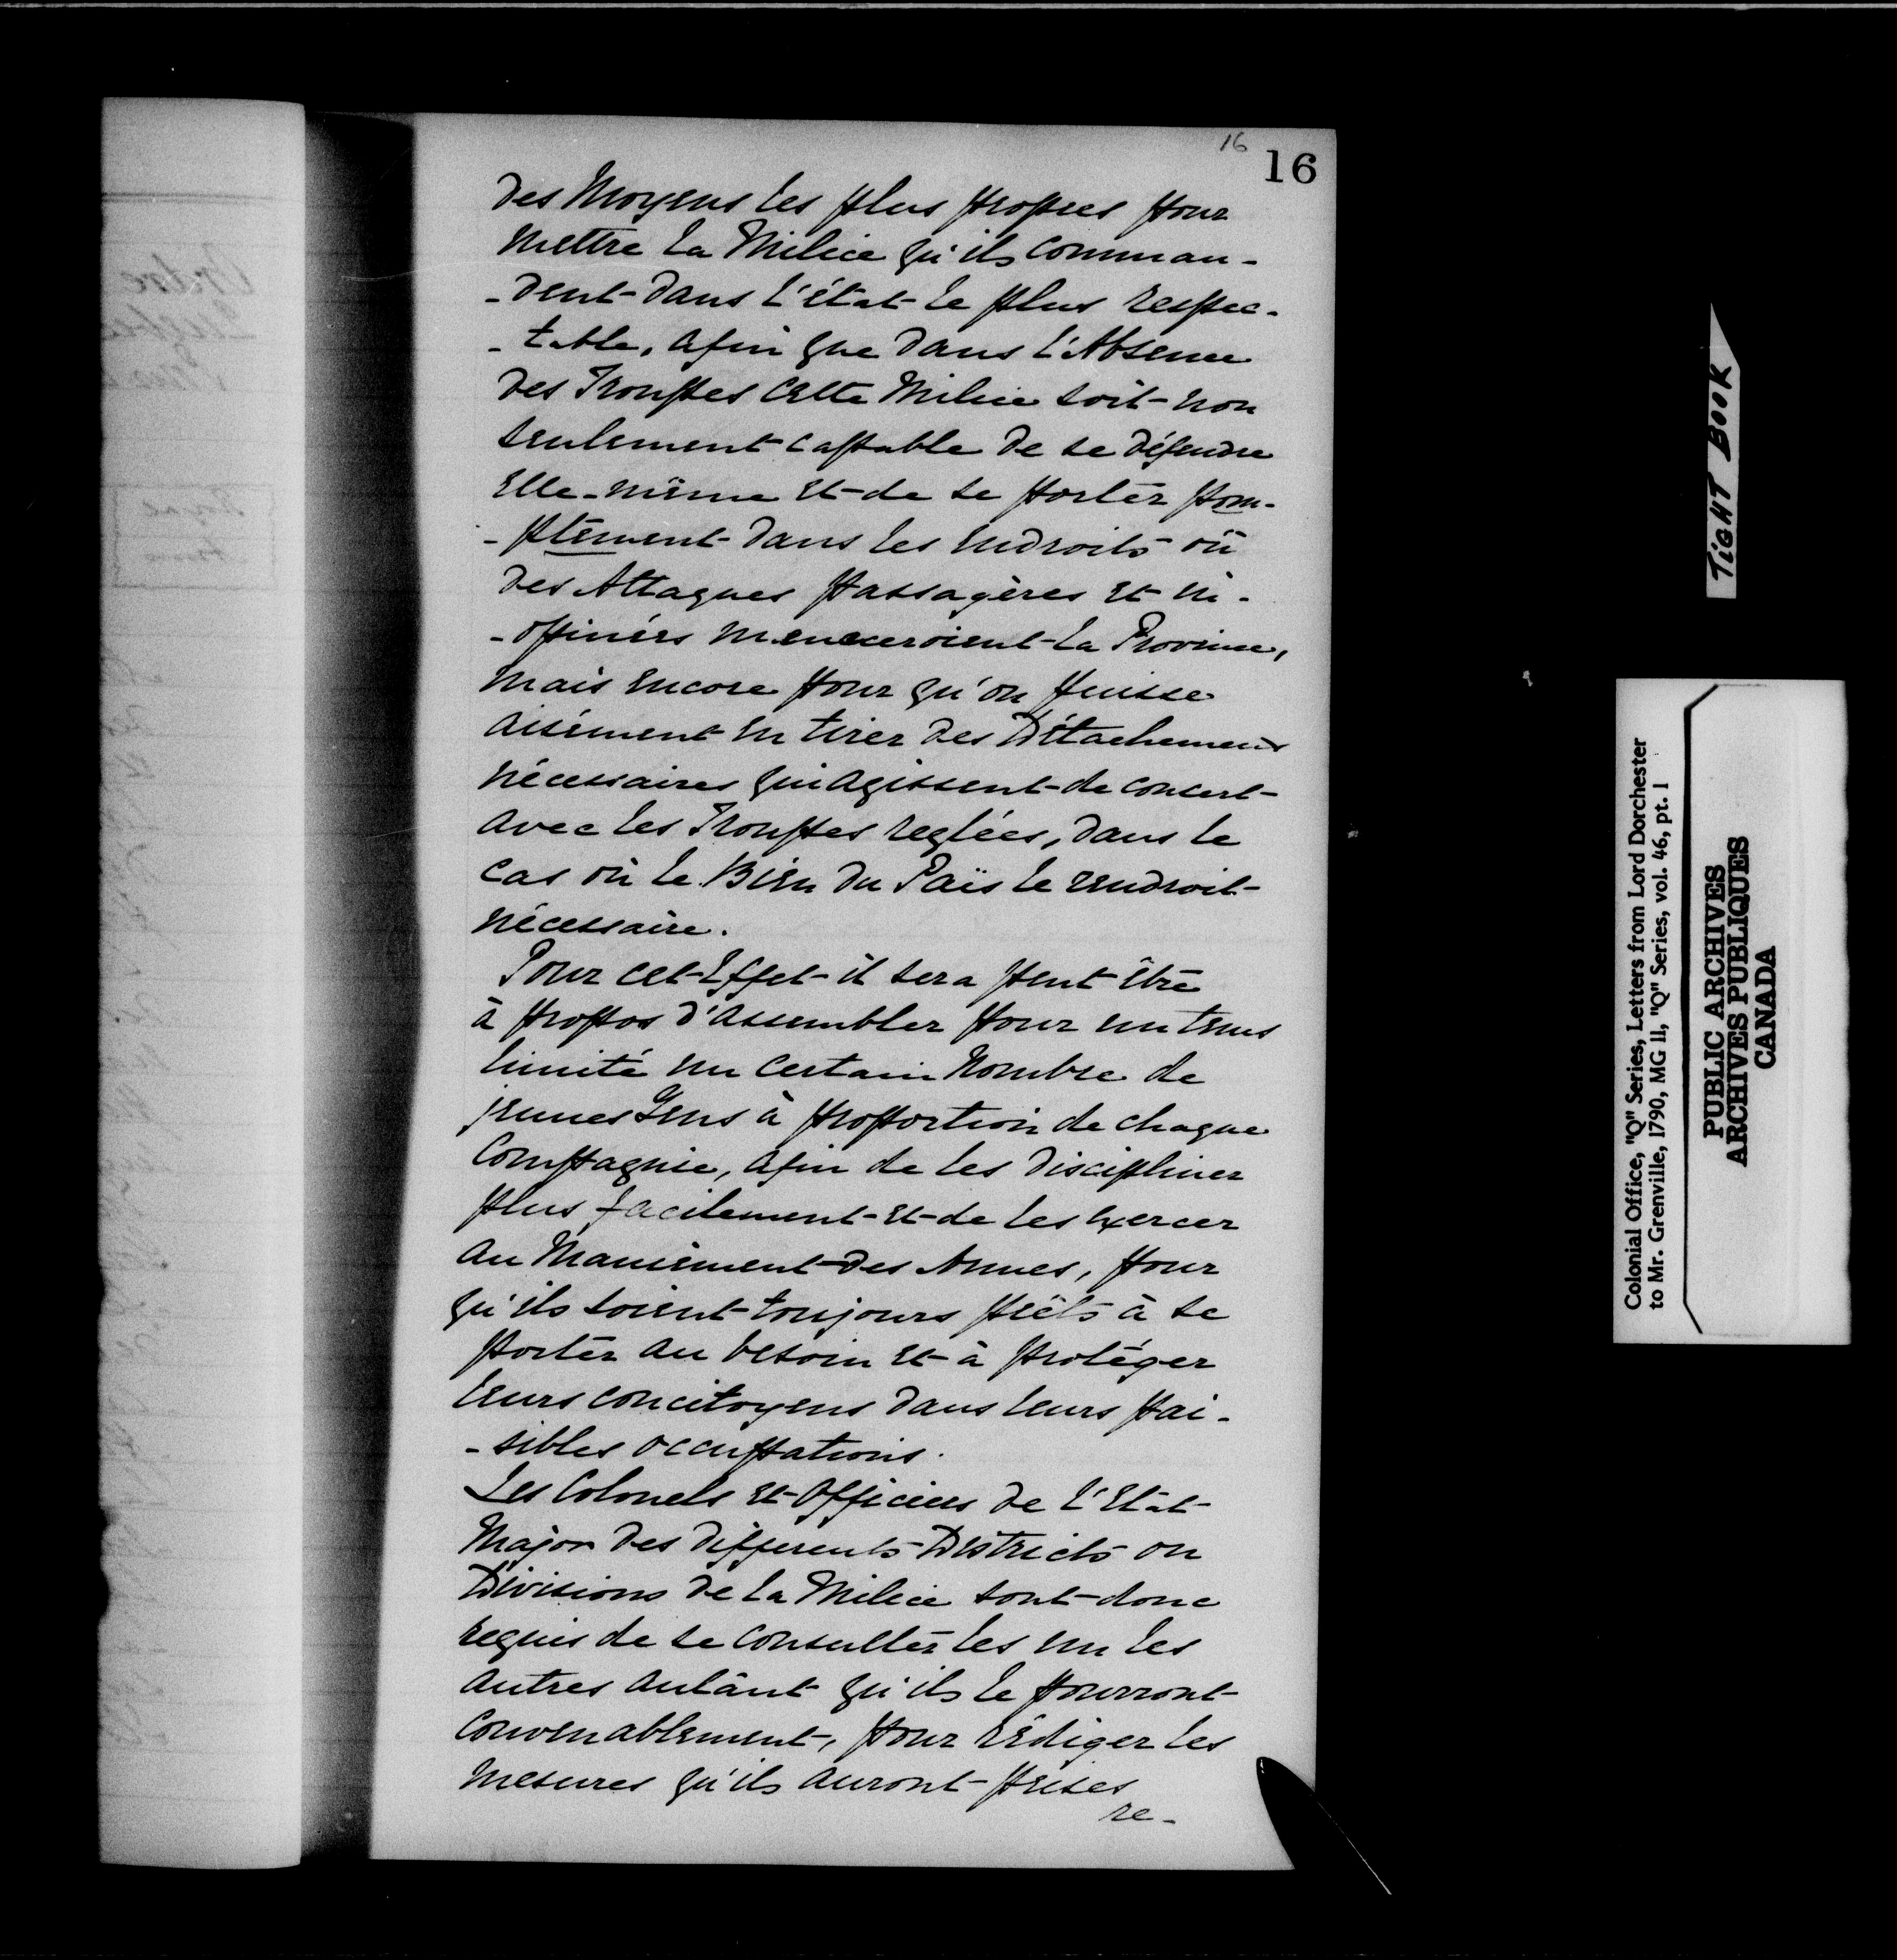 16
16
des Moyens les plus propres pour
mettre la Milice qu'ils comman-
-dent dans l'état le plus respec-
-table, afin que dans l'Absence
des Trouppes cette Milice soit non
seulement capable de se défendre
elle-même et de se porter pom-
-ptement dans les endroits où
des Attaques passagères et in-
-opinées menaceroient la Province,
mais encore pour qu'on puisse
aisément en tirer des Détachemens
nécessaires qui agissent de concert
avec les Trouppes reglées, dans le
cas où le Bien du Païs le rendroit
nécessaire.
Pour cet Effet il sera peut être
à propos d'assembler pour un tems
limité un certain Nombre de
jeunes Gens à proportion de chaque
Compagnie, afin de les discipliner
plus facilement et de les exercer
au Maniement des Armes, pour
qu'ils soient toujours prêts à se
porter au besoin et à protéger
leurs concitoyens dans leurs pai-
-sibles occupations.
Les Colonels et Officiers de l'Etat
Major des differents Districts ou
Divisions de la Milice sont donc
requis de se consulter les un les
autres autant qu'ils le pourront
convenablement, pour rédiger les
mesures qu'ils auront prises
re-
TIGHT BOOK
Colonial Office, "Q" Series, Letters from Lord Dorchester
to Mr. Grenville, 1790, MG 11, "Q" Series, vol. 46, pt. 1
PUBLIC ARCHIVES
ARCHIVES PUBLIQUES
CANADA